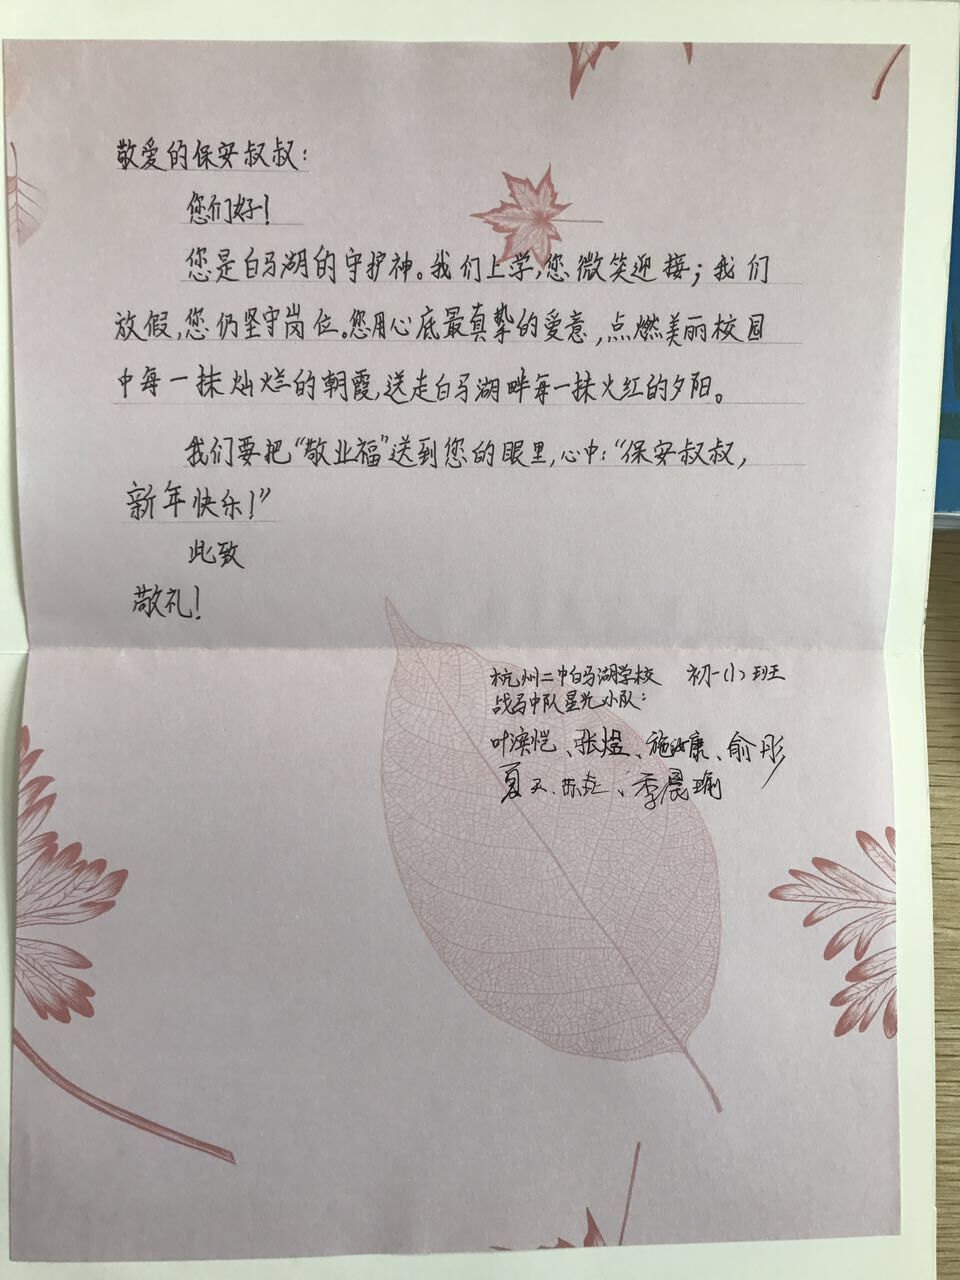 敬爱的保安叔叔：
您们好！
您是白马湖的守护神。我们上学，您微笑迎接；我们
放假，您仍坚守岗位。您用心底最真挚的爱意，点燃美丽校园
中每一抹灿烂的朝霞，送走白马湖畔每一抹火红的夕阳。
我们要把“敬业福”送到您的眼里，心中：“保安叔叔，
新年快乐！”
此致
敬礼！
杭州二中白马湖学校 初一（1）班
战马中队星光小队：
叶滨恺、张煜、施汝康、俞彤
夏天、陈垚、季晨瑜